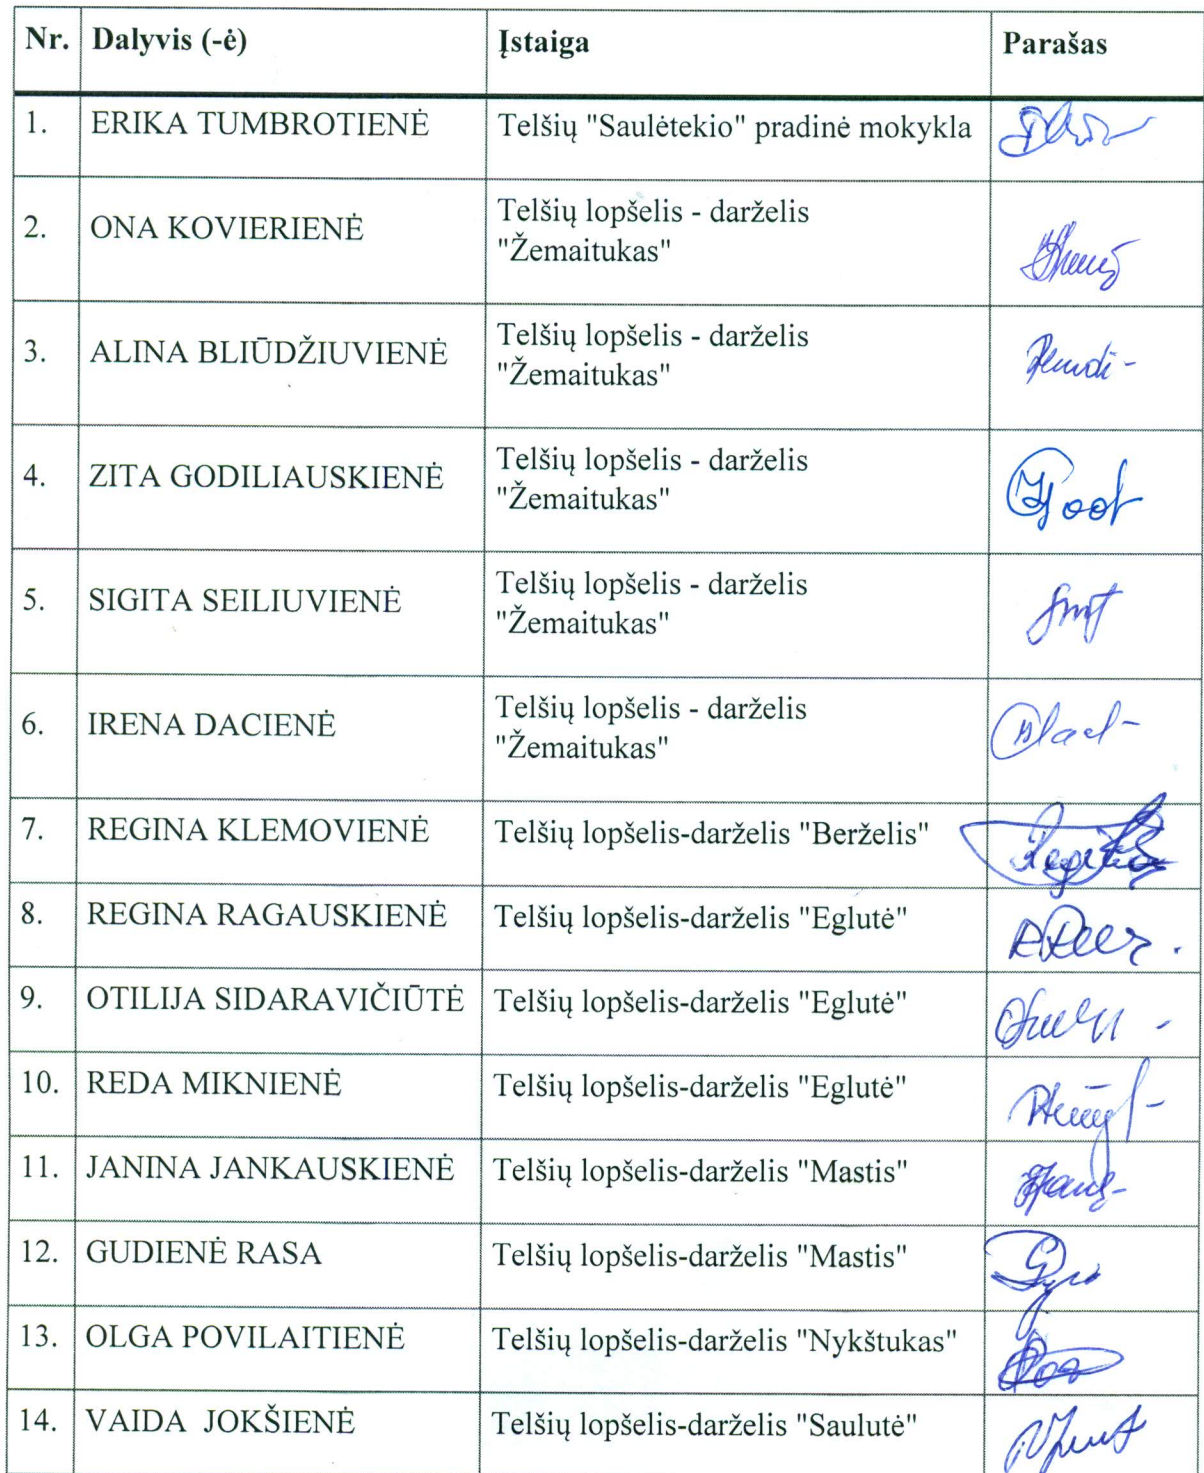 Nr. Dalyvis (-ė) Įstaiga Parašas
1. ERIKA TUMBROTIENĖ Telšių "Saulėtekio" pradinė mokykla
2. ONA KOVIERIENĖ Telšių lopšelis - darželis
"Žemaitukas"
3. ALINA BLIŪDŽIUVIENĖ Telšių lopšelis - darželis
"Žemaitukas"
4. ZITA GODILIAUSKIENĖ Telšių lopšelis - darželis
"Žemaitukas"
5. SIGITA SEILIUVIENĖ Telšių lopšelis - darželis
"Žemaitukas"
6. IRENA DACIENĖ Telšių lopšelis - darželis
"Žemaitukas"
7. REGINA KLEMOVIENĖ Telšių lopšelis-darželis "Berželis"
8. REGINA RAGAUSKIENĖ Telšių lopšelis-darželis "Eglutė"
9. OTILIJA SIDARAVIČIŪTĖ Telšių lopšelis-darželis "Eglutė"
10. REDA MIKNIENĖ Telšių lopšelis-darželis "Eglutė"
11. JANINA JANKAUSKIENĖ Telšių lopšelis-darželis "Mastis"
12. GUDIENĖ RASA Telšių lopšelis-darželis "Mastis"
13. OLGA POVILAITIENĖ Telšių lopšelis-darželis "Nykštukas"
14. VAIDA JOKŠIENĖ Telšių lopšelis-darželis "Saulutė"